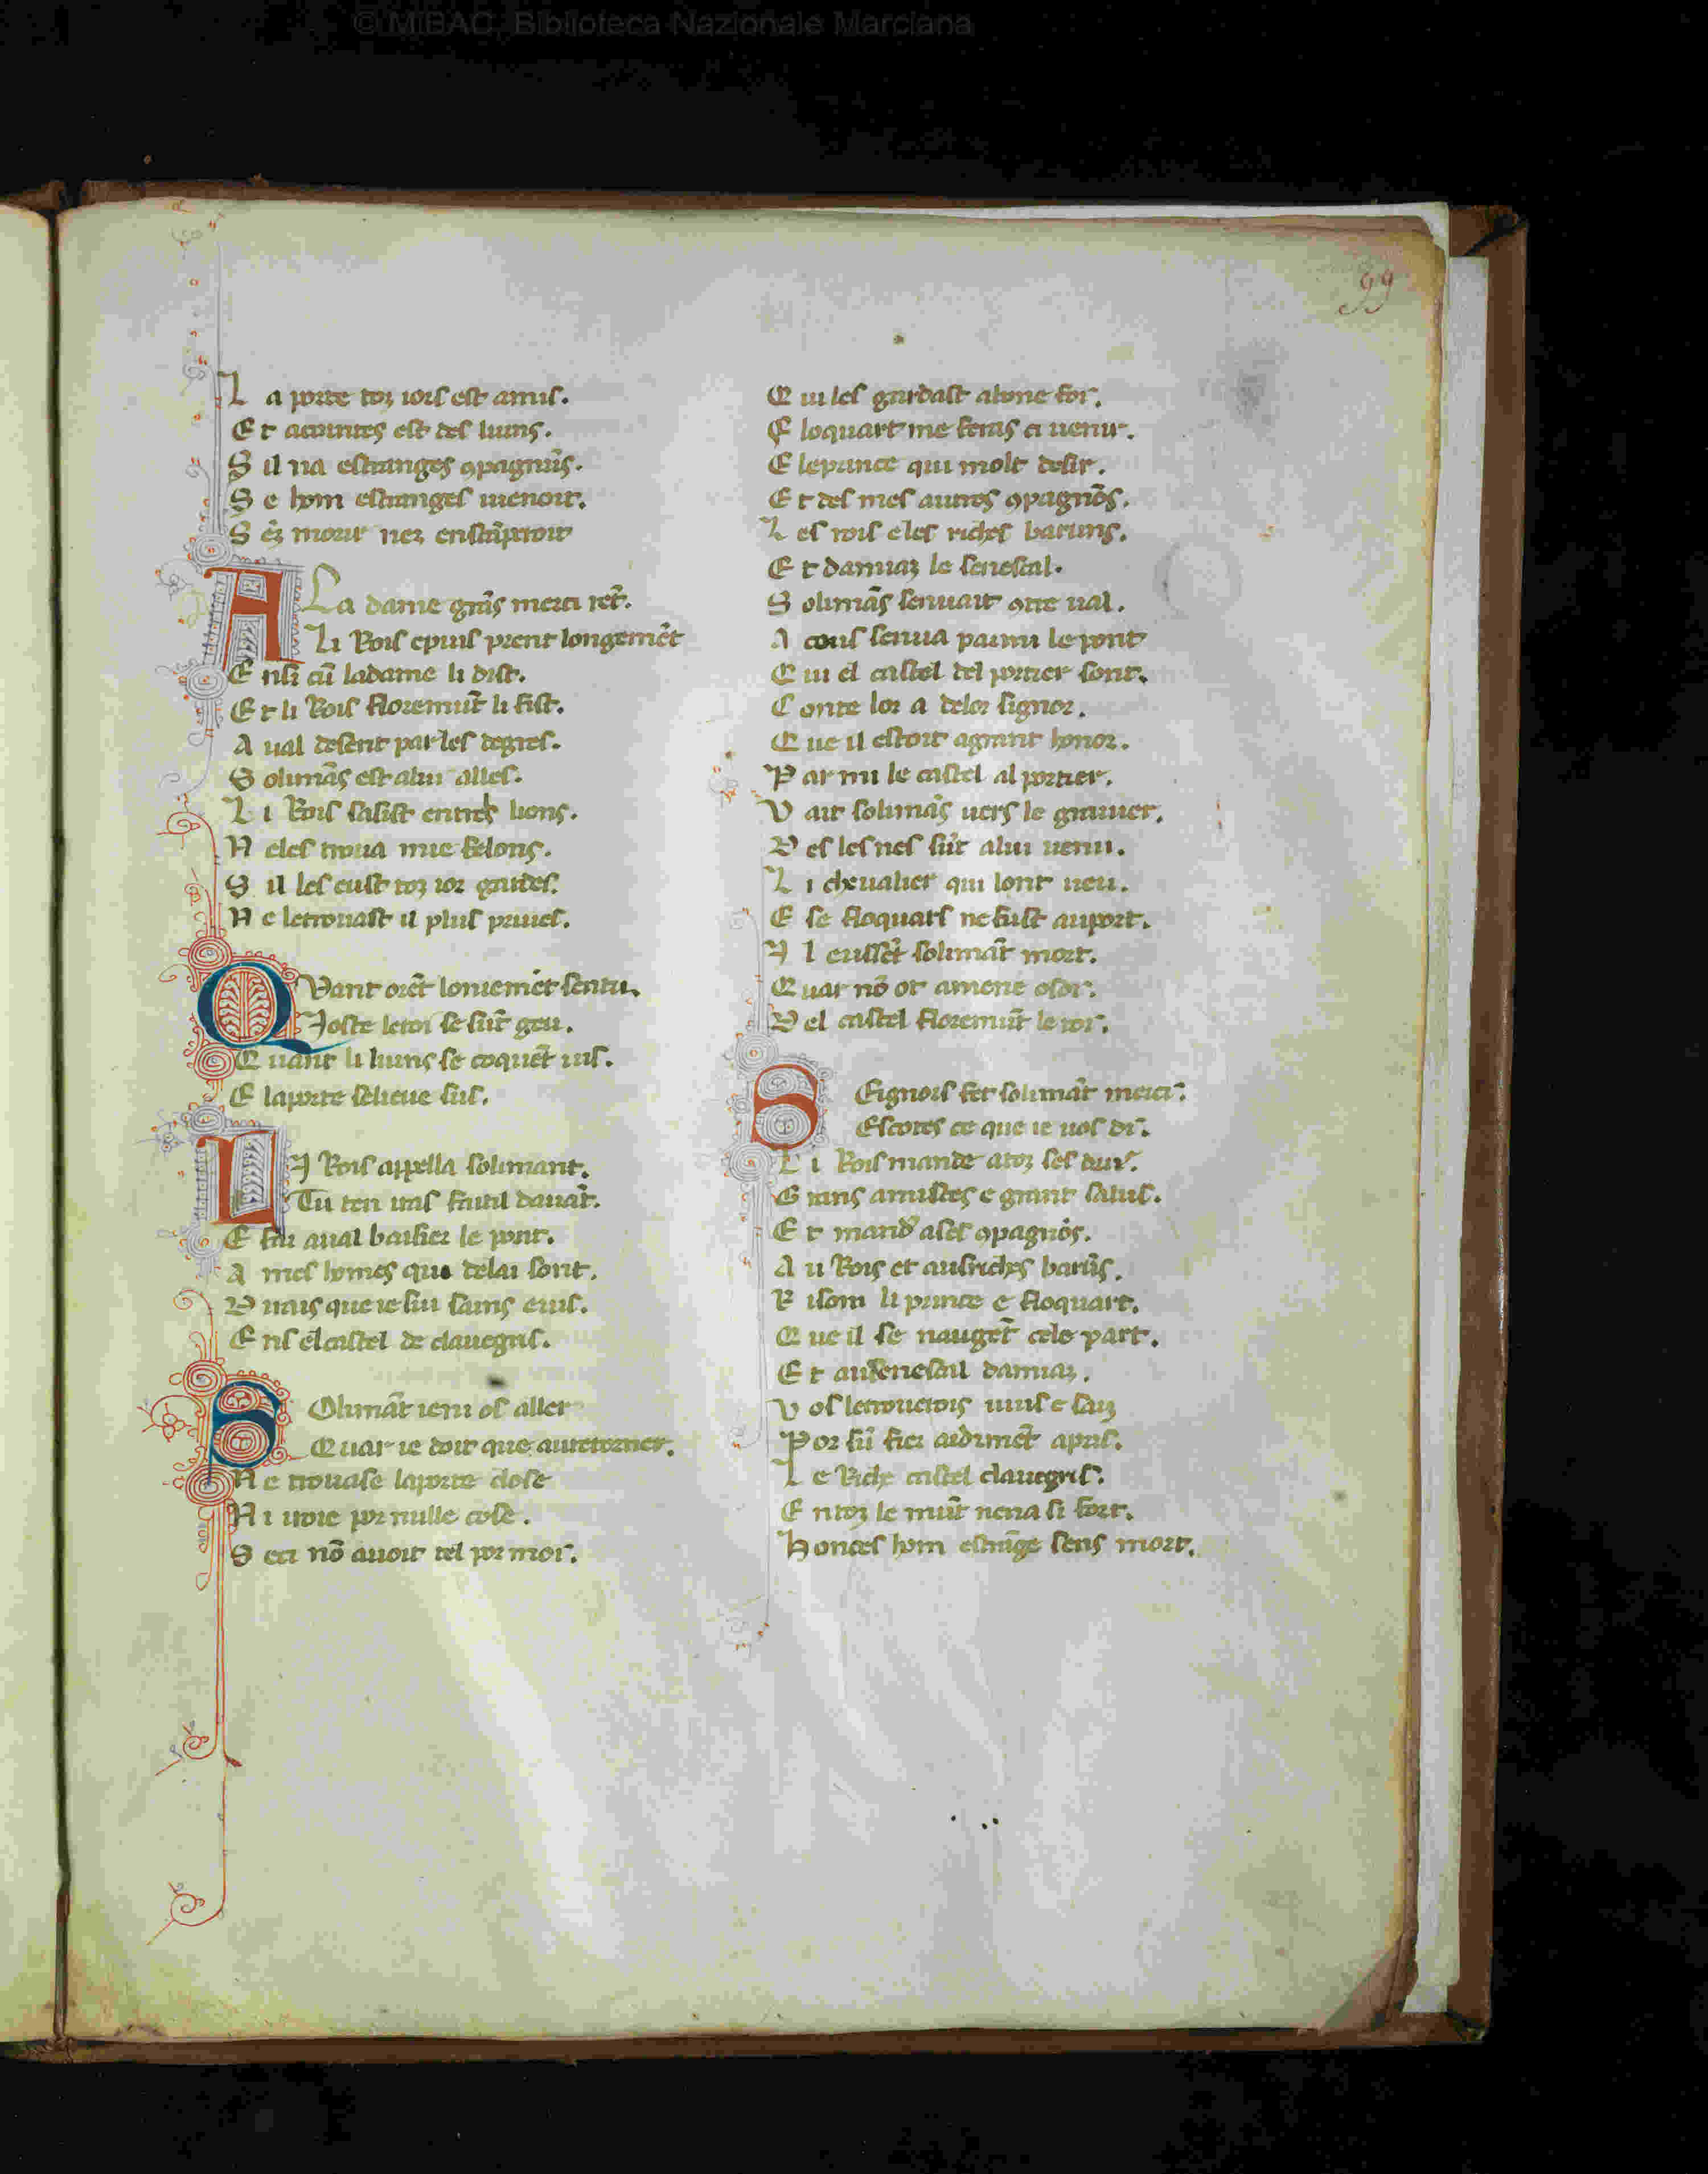 © MiBAC. Biblioteca Nazionale Marciana
99
L a porte toz iors est amis.
E t acointes est des luins.
S il na estranges ꝯpagnũs.
S e hom estranges uienoit.
S ẽz morir nez
A La dame grãs merci rẽt.
Li Rois epuis prent longemẽt
E nsi cũ ladame li dist.
E t li Rois floremũt li fist.
A ual desent par les degres.
S olimãs est alui alles.
L i Rois sasist entreb lions.
N eles troua mie felons.
S il les eust toz ior gardes.
N e letrouast il plus priues.
Q Vant orẽt loniemẽt sentu.
Joste leroi se sũt geu.
Q uant li luins se coquẽt ius.
E laporte selieue sus.
L I Rois appella solimant.
Tu ten iras fautil dauãt.
E fai aual baisier le pont.
A mes homes que delai sont.
D irais que ie sui sains euis.
E ns el castel de clauegris.
S Olimãt ieni os aller
Quar ie doit que auretorner.
N e trouase laporte close
N i iroie por nulle cose.
S eci nõ auoit tel por moi.
Q ui les gardast abone foi.
E loquart me feras ci uenir.
E leprince qui molt desir.
E t des mes autres ꝯpagnõs.
L es rois eles riches baruns.
E t damiaz le senescal.
S olimãs senuait ꝯtre ual.
A cous senua parmi le pont
Q ui el castel del portier sont.
C onte lor a delor signor.
Q ue il estoit agrant honor.
P ar mi le castel al portier.
V ait solimãs uers le grauier.
D es les nes sũt alui uenu.
L i cheualier qui lont ueu.
E se floquars ne fust auport.
I l eussẽt solimãt mort.
Q uar nõ ot amene osoi.
D el castel floremũt le roi.
S Eignors fet solimãt merci.
Escotes ce que ie uos di.
L i Rois mande atoz ses dur̃.
G rans amistes e grant salus.
E t mand̾ ases ꝯpagnõs.
A u Rois et ausriches barũs.
R isom li prince e floquart.
Q ue il se naugẽt cele part.
E t ausenescail damiaz.
V os letrouerois uiuse saz
P or sũ fier ardimẽt apris.
L e Riche castel clauegris.
E ntoz le mũt nena si fort.
H onces hom estrãge sens mort.